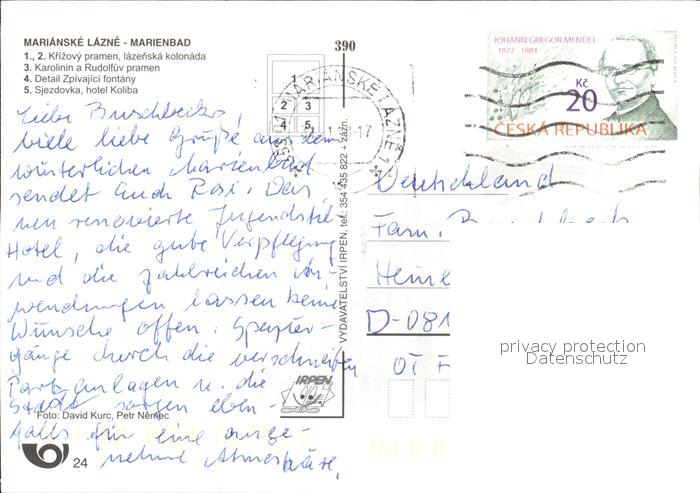 MARIÁNSKÉ LÁZNĚ - MARIENBAD
1., 2. Křížový pramen, lázeňská kolonáda
3. Karolinin a Rudolfův pramen
4. Detail Zpívající fontány
5. Sjezdovka, hotel Koliba
390
1
2 3
4 5
MARIÁNSKÉ LÁZNĚ 1
JOHANN GREGOR MENDEL
1822 - 1884
Kč
20
ČESKÁ REPUBLIKA
Liebe Buschbecks,
viele liebe Grüße aus dem
winterlichen Marienbad
sendet Euch Rosi. Das
neu renovierte Jugendstil-
Hotel, die gute Verpflegung
und die zahlreichen An-
wendungen lassen keine
Wünsche offen. Spazier-
gänge durch die verschneiten
Parkanlagen u. die
Stadt sorgen eben-
falls für eine ange-
nehme Atmosphäre.
VYDAVATELSTVÍ IRPEN, tel.: 354 435 822 + zázn.
IRPEN
Foto: David Kurc, Petr Němec
24
Deutschland
Fam.
Heine
D-081
OT F
privacy protection
Datenschutz